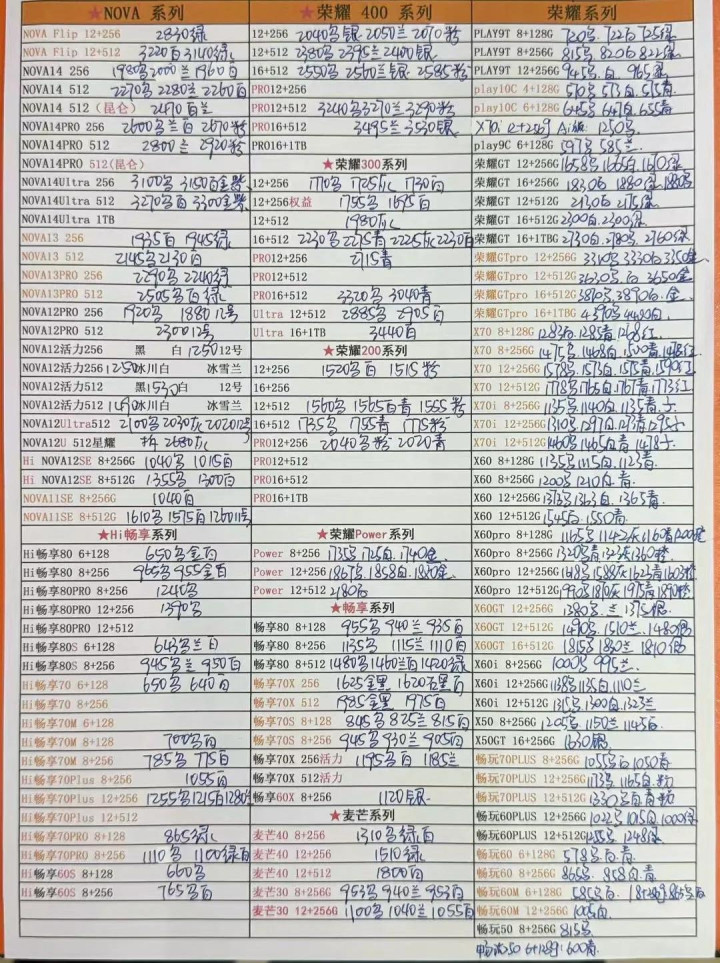 ★NOVA 系列
NOVA Flip 12+256 2830绿
NOVA Flip 12+512 3220白 3140绿
NOVA14 256 1980名 2000兰 1960白
NOVA14 512 2270名 2280兰 2260白
NOVA14 512 (昆仑) 2470白兰
NOVA14PRO 256 2600名兰白 2670粉
NOVA14PRO 512 2800兰 2920粉
NOVA14PRO 512(昆仑)
NOVA14Ultra 256 3100名 3150白金紫
NOVA14Ultra 512 3270名白 3300金紫
NOVA14Ultra 1TB
NOVA13 256 1935白 1945绿
NOVA13 512 2145名 2130白
NOVA13PRO 256 2290名 2240绿
NOVA13PRO 512 2505名白绿
NOVA12PRO 256 1920名 1880 12号
NOVA12PRO 512 2300 12号
NOVA12活力256 黑 白 1250 12号
NOVA12活力256 1250冰川白 冰雪兰
NOVA12活力512 黑1530白 12号
NOVA12活力512 1490冰川白 冰雪兰
NOVA12Ultra512 2100名 2030灰 2020 12号
NOVA12U 512星耀 2680灰
Hi NOVA12SE 8+256G 1040名 1015白
Hi NOVA12SE 8+512G 1355名 1300白
NOVA11SE 8+256G 1040白
NOVA11SE 8+512G 1610名 1575白 1260 11号
★Hi畅享系列
Hi畅享80 6+128 650名金白
Hi畅享80 8+256 965名 955金白
Hi畅享80PRO 8+256 1240名
Hi畅享80PRO 12+256 1390名
Hi畅享80PRO 12+512
Hi畅享80S 6+128 643名兰白
Hi畅享80S 8+256 945名兰 950白
Hi畅享70 6+128 650名 640白
Hi畅享70 8+256
Hi畅享70M 6+128
Hi畅享70M 8+128 700名白
Hi畅享70M 8+256 785名 775白
Hi畅享70Plus 8+256 1055白
Hi畅享70Plus 12+256 1255名 1215白 1280兰
Hi畅享70Plus 12+512
Hi畅享70PRO 8+128 865绿
Hi畅享70PRO 8+256 1110名 1100绿白
Hi畅享60S 8+128 660名
Hi畅享60S 8+256 765名白
★荣耀 400 系列
12+256 2040名银 2050兰 2070粉
12+512 2380名 2395兰 2400银
16+512 2550名 2560兰银 2585粉
PRO12+256
PRO12+512 3240名 3270兰 3290粉
PRO16+512 3495兰 3530银
PRO16+1TB
★荣耀300系列
12+256 1710名 1725灰 1730白
12+256权益 1755名 1695白
12+512 1980灰
16+512 2230名 2275青 2225灰 2230白
PRO12+256 2715青
PRO12+512
PRO16+512 3320名 3040青
Ultra 12+512 2885名 2905白
Ultra 16+1TB 3440白
★荣耀200系列
12+256 1520名白 1515粉
16+256
12+512 1560名 1565白青 1555粉
16+512 1735名 1755青 1775粉
PRO12+256 2040名粉 2020青
PRO12+512
PRO16+512
PRO16+1TB
★荣耀Power系列
Power 8+256 1735名 1725白 1740金
Power 12+256 1867名 1858白 1880金
Power 12+512 2180白
★畅享系列
畅享80 8+128 955名 940兰 935白
畅享80 8+256 1135名 1115兰 1110白
畅享80 8+512 1480名 1460兰白 1420绿
畅享70X 256 1625金黑 1620石黑白
畅享70X 512 1985金黑 1975白
畅享70S 8+128 845名 825兰 815白
畅享70S 8+256 945名 930兰 905白
畅享70X 256活力 1195名白 1185兰
畅享70X 512活力
畅享60X 8+256 1120银
★麦芒系列
麦芒40 8+256 1310名绿白
麦芒40 12+256 1510绿
麦芒40 12+512 1800白
麦芒30 8+256G 953名 940兰 953白
麦芒30 12+256G 1100名 1040兰 1055白
荣耀系列
PLAY9T 8+128G 720名 722白 725绿
PLAY9T 8+256G 815名 820白 822绿
PLAY9T 12+256G 945名.白 965绿
play10C 4+128G 570名 573白 575青
play10C 6+128G 645名 647白 655青
X70i 12+256g Ai版 1250名
play9C 6+128G 597名 585兰
荣耀GT 12+256G 1658名 1665白 1610绿
荣耀GT 16+256G 1830白 1880绿 1880名
荣耀GT 12+512G 2130白 2175绿
荣耀GT 16+512G 2300白.2300绿
荣耀GT 16+1TBG 2730白.2780名 2760绿
荣耀GTpro 12+256G 3310名 3330白 3350金
荣耀GTpro 12+512G 3630名.白 3650金
荣耀GTpro 16+512G 3810名 3890白.金
荣耀GTpro 16+1TBG 4390名 4420白
X70 8+128G 1283白 1285青 1268红
X70 8+256G 1475名 1468白 1500青 1478红
X70 12+256G 1578名 1573白 1575青 1590红
X70 12+512G 1778名 1766白 1767青 1773红
X70i 8+256G 1135名 1140白 1135青.子
X70i 12+256G 1310名 1297白 1273青 1295子
X70i 12+512G 1460名 1465白青 1478子
X60 8+128G 1135名 1115白.1123青
X60 8+256G 1200名 1210白 青
X60 12+256G 1373名 1363白 1365青
X60 12+512G 1545白 1550青
X60pro 8+128G 1165名 1142灰 1160青
X60pro 8+256G 1320名青 1327灰 1360橙
X60pro 12+256G 1618名 1588灰 1623青 1603橙
X60pro 12+512G 1990名 1870灰 1975青 1890橙
X60GT 12+256G 1380名.兰 1375银
X60GT 12+512G 1490名.1510兰 1480银
X60GT 16+512G 1815名 1830兰 1810银
X60i 8+256G 1000名 995兰
X60i 12+256G 1138名 1135白 1110兰
X60i 12+512G 1315名 1300白 1323兰
X50 8+256G 1205名 1150兰 1145白
X50GT 16+256G 1630银
畅玩70PLUS 8+256G 1055名白 1050青
畅玩70PLUS 12+256G 1173名 1165白.粉
畅玩70PLUS 12+512G 1330名白青粉
畅玩60PLUS 12+256G 1022名 1015白 1000绿
畅玩60PLUS 12+512G 1255名 1248绿
畅玩60 6+128G 578名 白.青
畅玩60 8+256G 865名.858白 青
畅玩60M 6+128G 585名白
畅玩60M 12+256G 1005白
畅玩50 8+256G 815名
畅玩50 6+128g: 600青